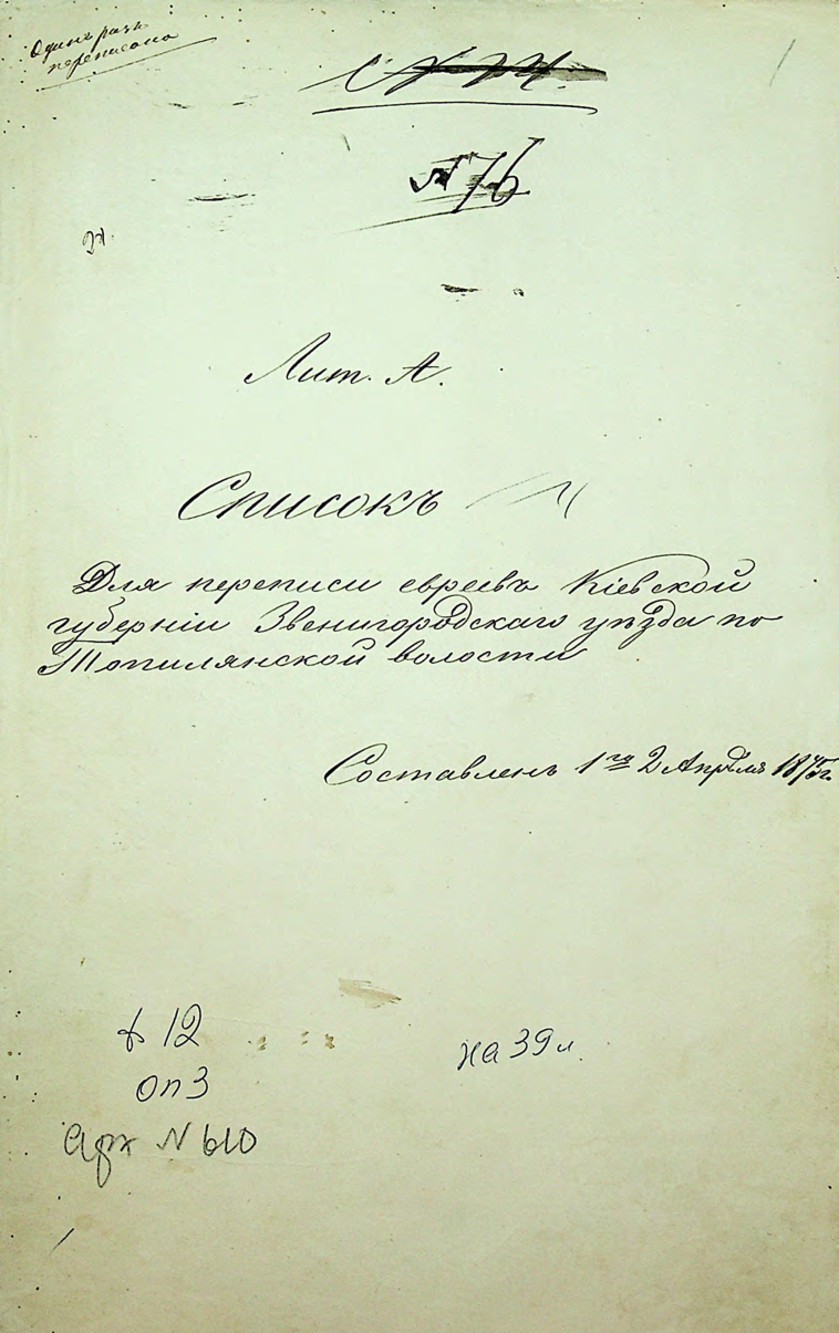 Одинъ разъ
переписано
№ 76
Лит. А.
Списокъ
Для переписи евреевъ Кіевской
губерніи Звенигородскаго уѣзда по
Топилянской волости
Составленъ 1го 2 Апрѣля 1875г.
ф 12
оп 3
на 39 л.
арх N 610